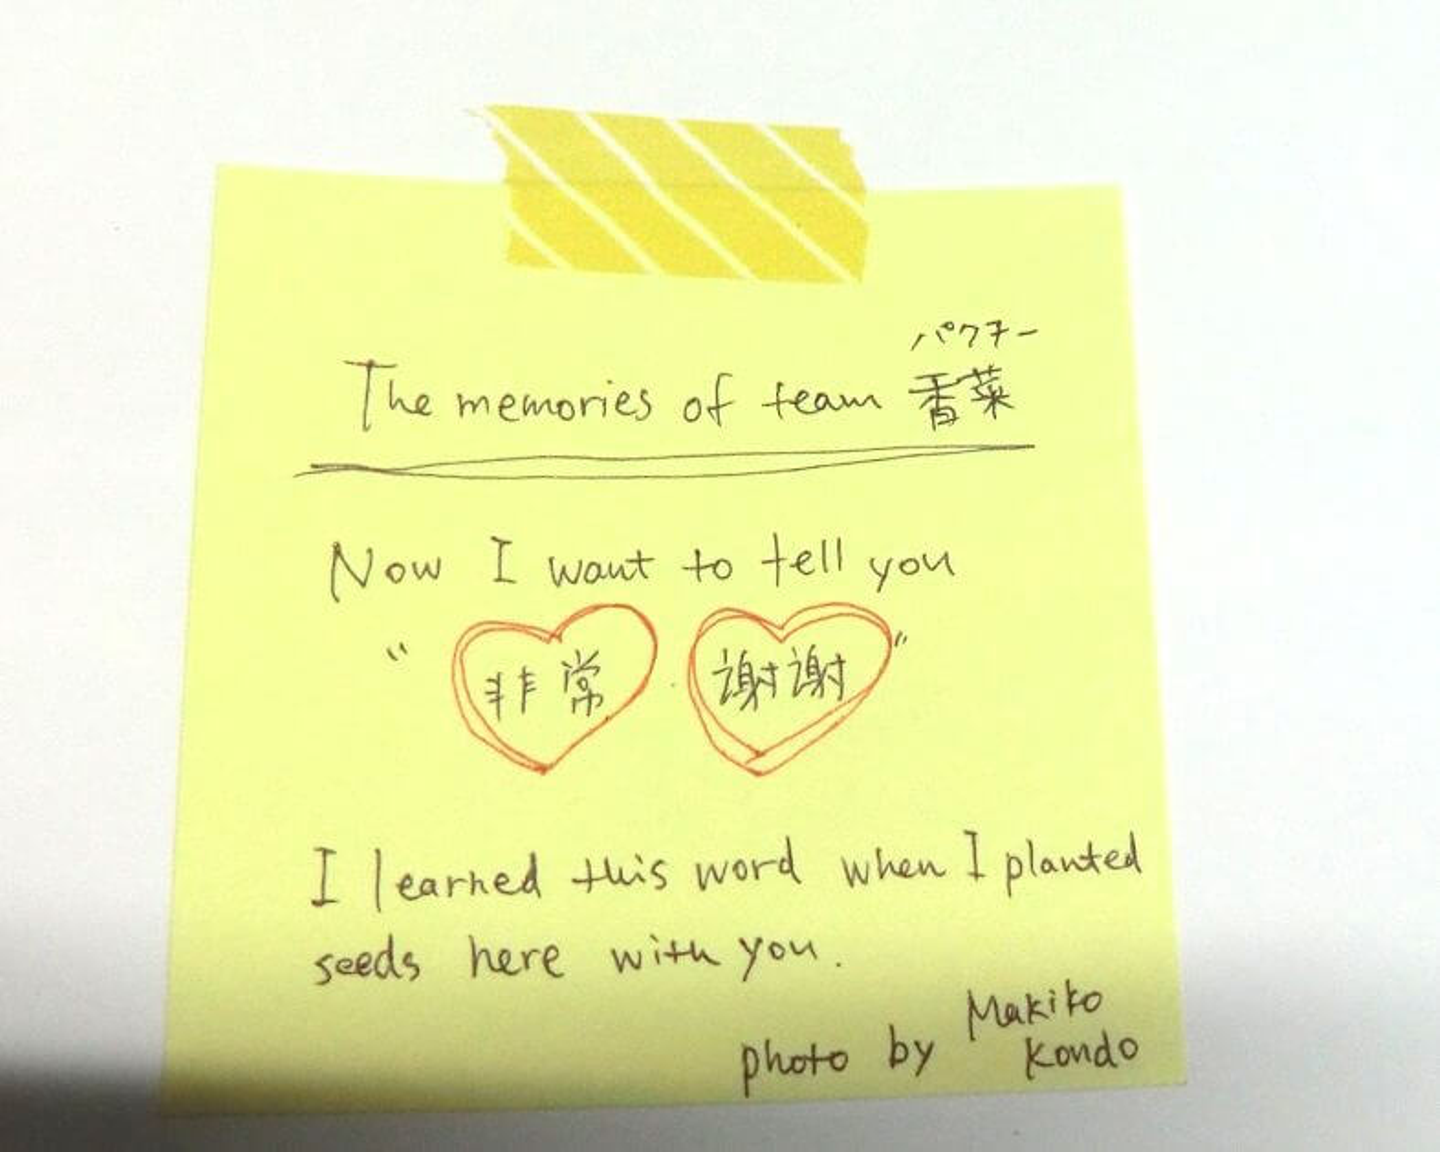 パクチー
The memories of team 香菜
Now I want to tell you
" 非常 謝謝 "
I learned this word when I planted
seeds here with you.
photo by Makiko
Kondo